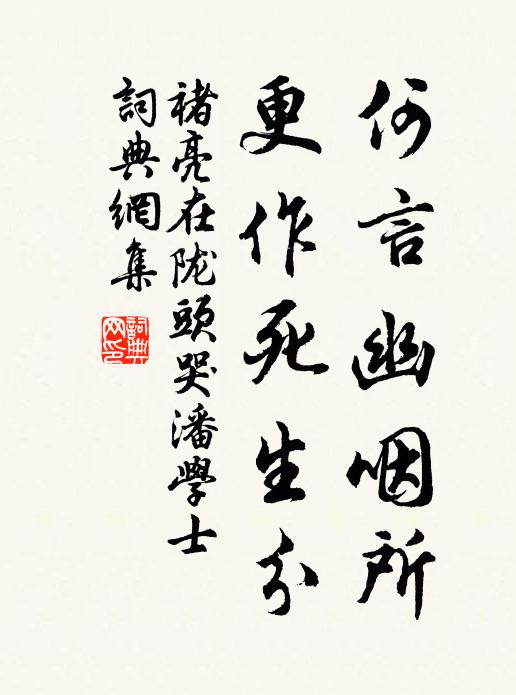 何言幽咽所
更作死生分
褚亮在陇頭哭潘學士
詞典網集
詞典
网印